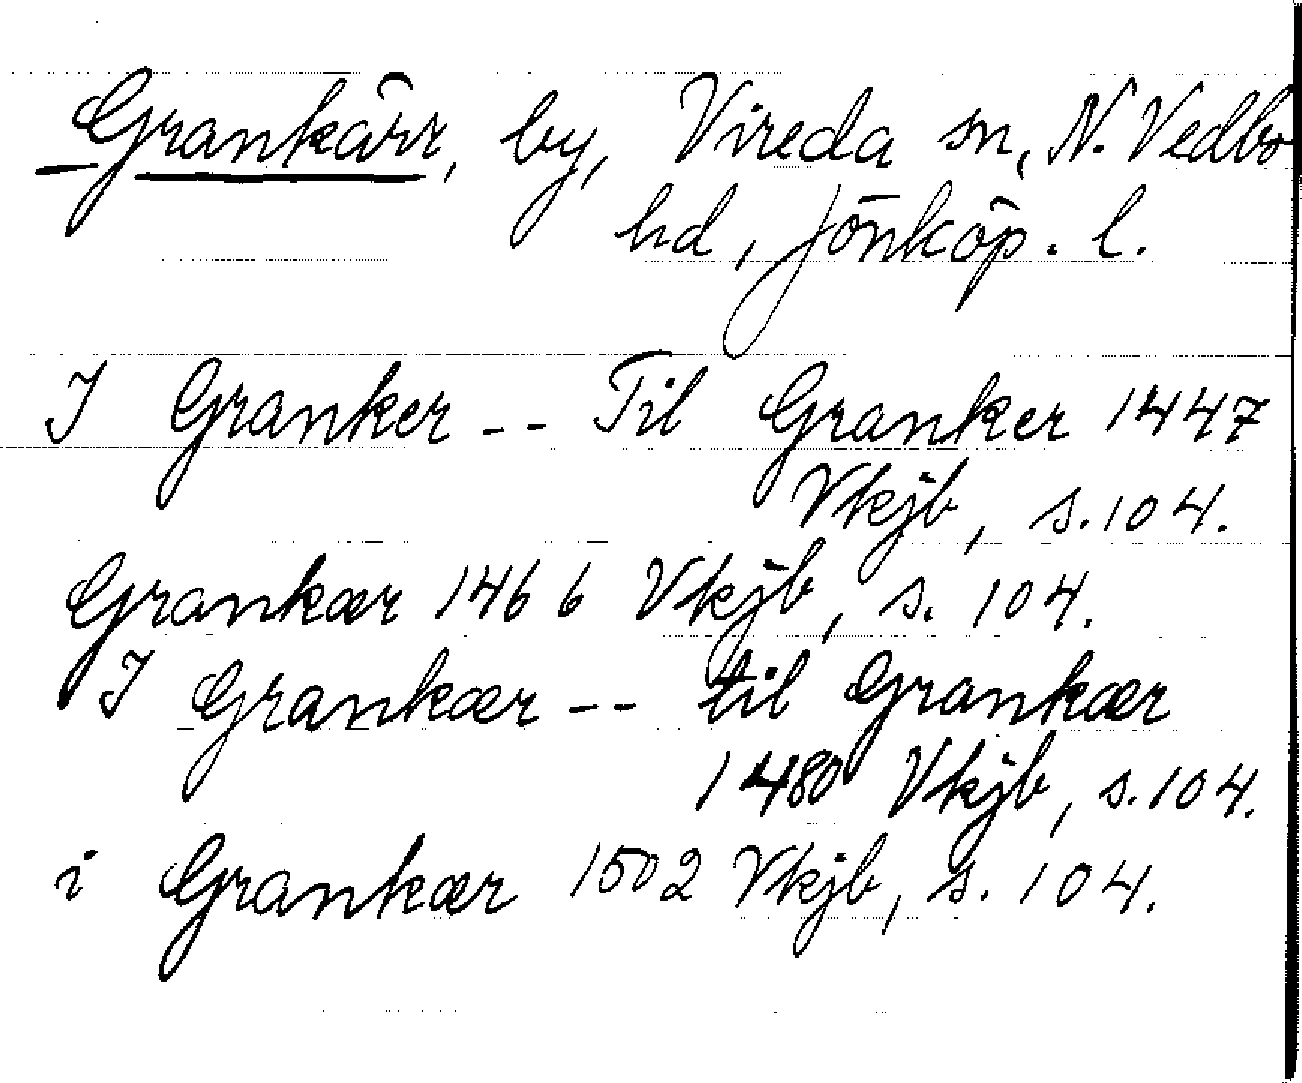 Grankärr, by, Vireda sn, N. Vedbo
hd, Jönköp. l.
I Granker -- Til Granker 1447
Vkjb, s. 104.
Grankær 1466 Vkjb, s. 104.
I Grankær -- til Grankær
1480 Vkjb, s. 104.
i Grankær 1502 Vkjb, s. 104.